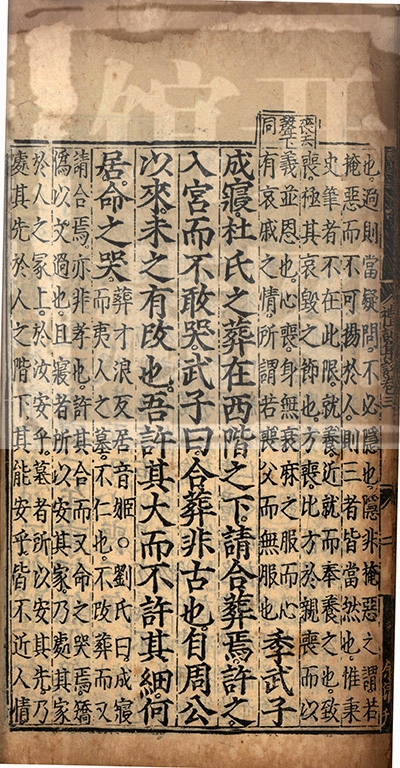 喪去
聲下
同
也過則當疑問不必隱也隱非掩惡之謂若
掩惡而不可揚於人則三者皆當然也惟秉
史筆者不在此限就養近就而奉養之也致
喪極其哀毀之節也方喪比方於親喪而以
義並恩也心喪身無衰麻之服而心
有哀戚之情所謂若喪父而無服也
季武子
成寢杜氏之葬在西階之下請合葬焉許之
入宮而不敢哭武子曰合葬非古也自周公
以來未之有改也吾許其大而不許其細何
居命之哭
葬才浪反居音姬○劉氏曰成寢
而夷人之墓不仁也不改葬而又
請合焉亦非孝也許其合而又命之哭焉矯
偽以文過也且寢者所以安其家乃處其家
於人之冢上於汝安乎墓者所以安其先乃
處其先於人之階下其能安乎皆不近人情